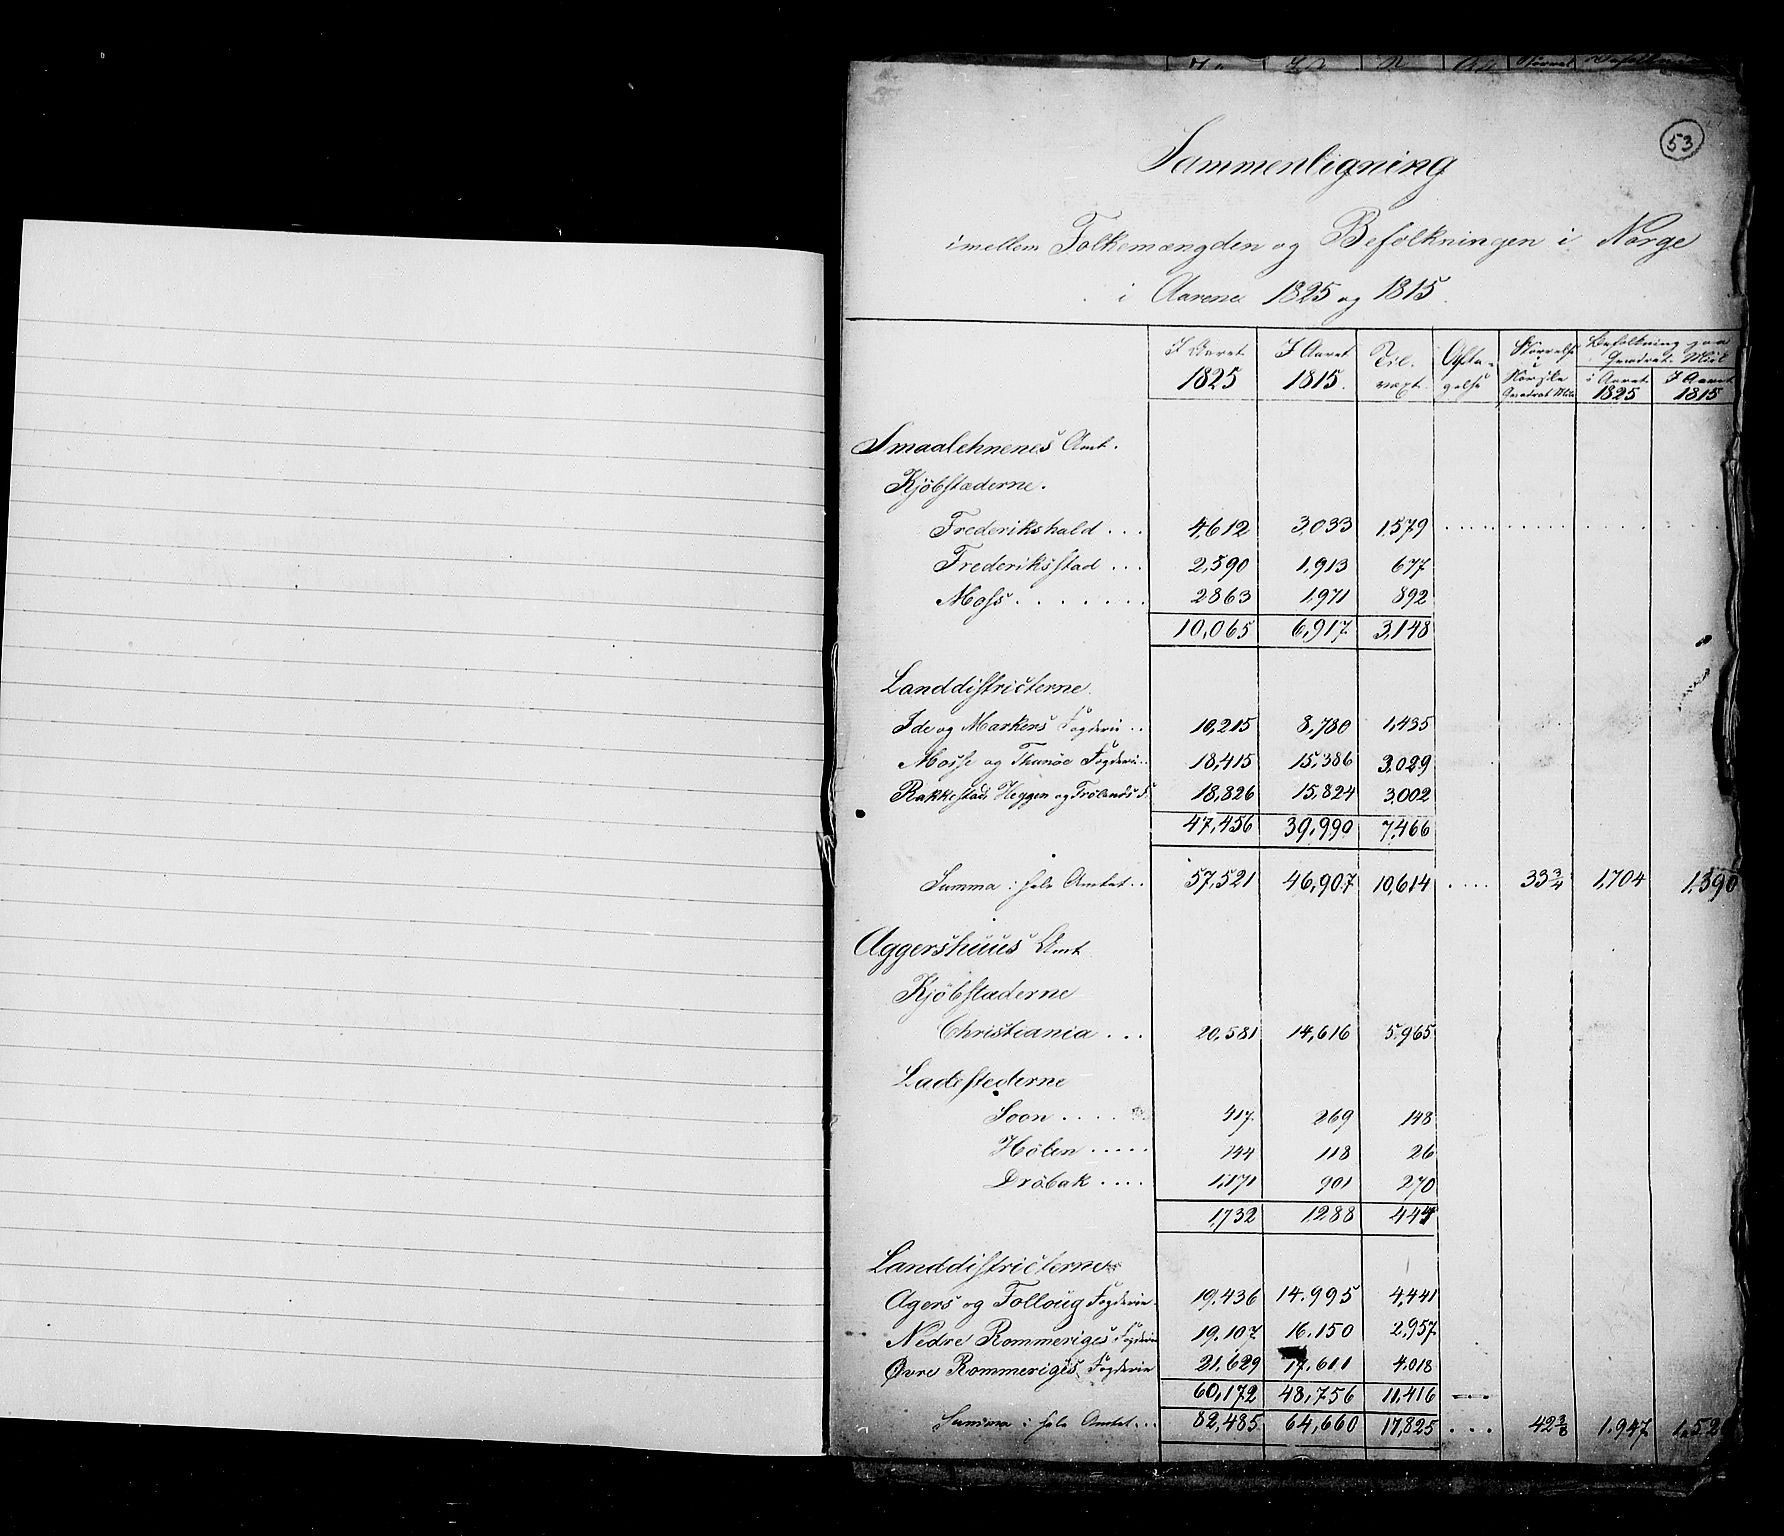 53
Sammenligning
imellem Folkemængden og Befolkningen i Norge
i Aarene 1825 og 1815.
I Aaret 1825 I Aaret 1815. Til-væxt Afta-gelse Størrelse i Norske Quadrat Mile Befolkning paa Quadrat Miil i Aaret 1825 I Aaret 1815
Smaalehnenes Amt.
Kjöbstæderne.
Frederikshald . . . 4,612 3,033 1,579
Frederiksstad . . . 2,590 1,913 677
Moss . . . . . . . 2863 1,971 892
10,065 6,917 3,148
Landdistricterne.
Ide og Markers Fogderie . . 10,215 8,780 1,435
Mosse og Thunöe Fogderie . . 18,415 15,386 3,029
Rakkestad, Heggen og Frölands F. 18,826 15,824 3,002
47,456 39,990 7,466
Summa i hele Amtet . . 57,521 46,907 10,614 . . . . 33 3/4 1,704 1,390
Aggershuus Amt
Kjöbstæderne
Christiania . . . 20,581 14,616 5,965
Ladestederne
Soon . . . . 417 269 148
Hölen . . . . . 144 118 26
Dröbak . . . . 1,171 901 270
1,732 1288 444
Landdistricterne
Agers og Folloug Fogderie 19,436 14,995 4,441
Nedre Rommeriges Fogderie 19,107 16,150 2,957
Øvre Rommeriges Fogderie 21,629 17,611 4,018
60,172 48,756 11,416
Summa i hele Amtet . . . 82,485 64,660 17,825 . . . 42 3/8 1,947 1,52